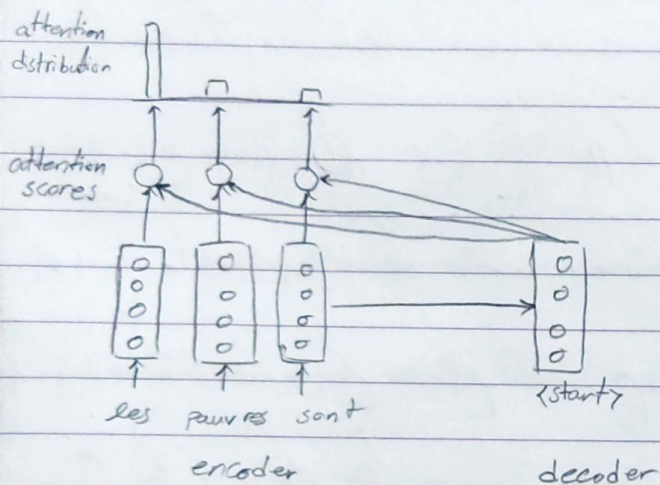 attention
distribution
attention
scores
<start>
les pauvres sont
encoder decoder